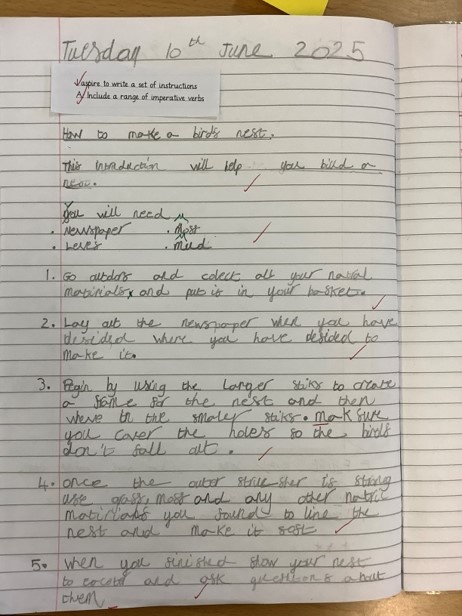 Tuesday 10th June 2025
I aspire to write a set of instructions
Include a range of imperative verbs
How to make a birds nest.
This Introduction will help you build a
nest.
You will need
. Newspaper . Most
. Leves . Mud
1. Go outdors and colect all your natral
matirials, and put is in your basket.
2. Lay out the newspaper when you have
decided where you have desided to
make it.
3. Begin by using the larger stiks to create
a frame for the nest and then
weve in the smaler stiks. mak sure
you cover the holes so the birds
don't fall out.
4. once the outer is strong
use gass, most and any other natril
matirials you found to line the
nest and make it soft
5. when you finished show your nest
to and ask questions about
them